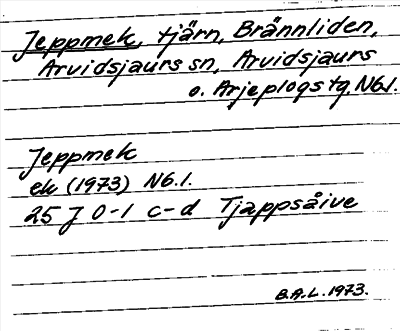 Jeppmek, tjärn, Brännliden,
Arvidsjaurs sn, Arvidsjaurs
o. Arjeplogs tg Nbl.
Jeppmek
ek (1973) Nb.l.
25 J 0-1 c-d Tjappsåive
B.A.L. 1973.